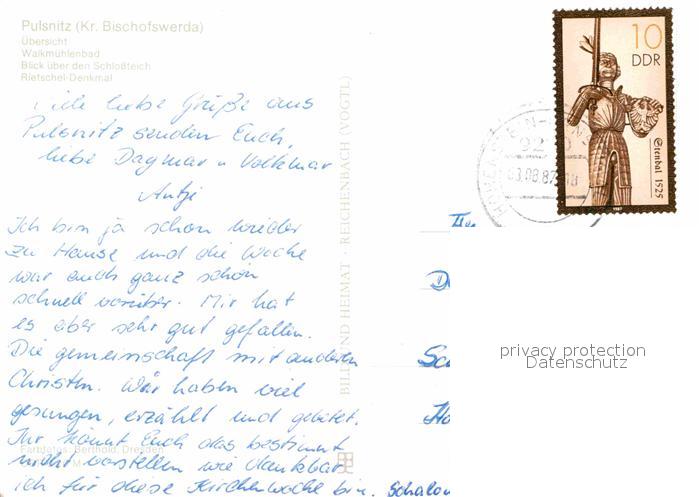 Pulsnitz (Kr. Bischofswerda)
Übersicht
Walkmühlenbad
Blick über den Schloßteich
Rietschel-Denkmal
Viele liebe Grüße aus
Pulsnitz senden Euch,
liebe Dagmar u Volkmar
Antje
Ich bin ja schon wieder
zu Hause und die Woche
war auch ganz schön
schnell vorüber. Mir hat
es aber sehr gut gefallen.
Die gemeinschaft mit anderen
Christen. Wir haben viel
gesungen, erzählt und gebetet.
Ihr könnt Euch das bestimmt
nicht vorstellen wie dankbar
ich für diese Kirchenwoche bin. Schalom
Farbfotos: Berthold, Dresden
BILD UND HEIMAT · REICHENBACH (VOGTL)
10
DDR
Stendal 1525
privacy protection
Datenschutz